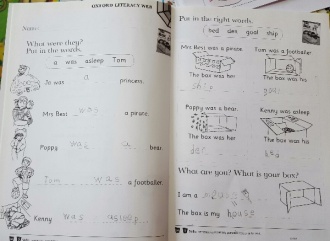 OXFORD LITERACY WEB
Name:
What were they?
Put in the words.
a was asleep Tom
Jo was a princess.
Mrs Best was a pirate.
Poppy was a bear.
Tom was a footballer.
Kenny was asleep.
Put in the right words.
bed den goal ship
Mrs Best was a pirate.
The box was her
ship
Tom was a footballer
The box was his
goal
Poppy was a bear.
The box was her
den
Kenny was asleep
The box was his
bed
What are you? What is your box?
I am a
The box is my house